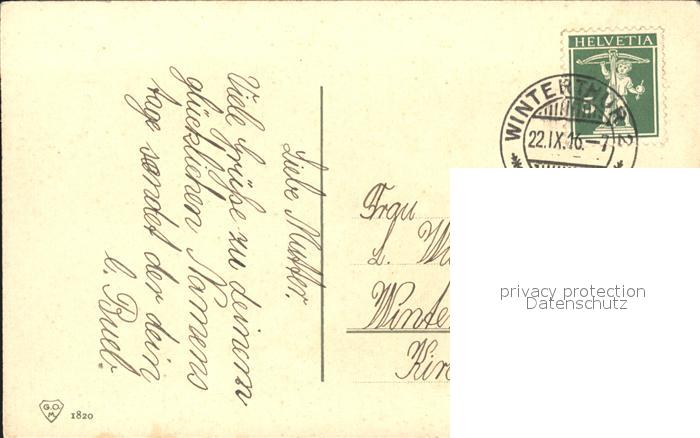 HELVETIA
5
WINTERTHUR 2
22.IX.16.—7
Liebe Mutter.
Viele Grüße zu deinem
glücklichen Namens
tage sendet der dein
l. Bueb.
Frau
L. W
Winte
Kir
privacy protection
Datenschutz
G.O.M.
1820